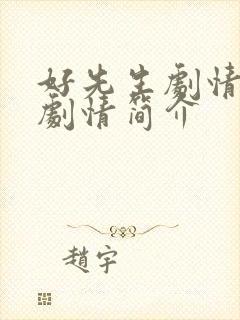 好先生劇情
劇情简介
趙宇